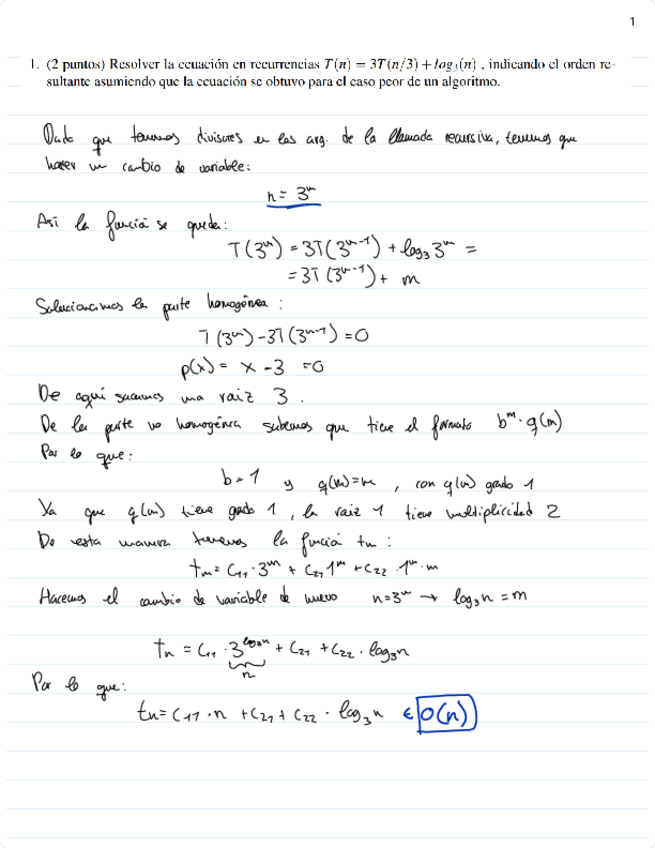 1
1. (2 puntos) Resolver la ecuación en recurrencias T(n) = 3T(n/3) + log₃(n) , indicando el orden re-
sultante asumiendo que la ecuación se obtuvo para el caso peor de un algoritmo.
Dado que tenemos divisores en los arg. de la llamada recursiva, tenemos que
hacer un cambio de variable:
n = 3ᵐ
Asi la función se queda:
T(3ᵐ) = 3T(3ᵐ⁻¹) + log₃ 3ᵐ =
= 3T(3ᵐ⁻¹) + m
Solucionamos la parte homogénea :
T(3ᵐ) - 3T(3ᵐ⁻¹) = 0
p(x) = x - 3 = 0
De aquí sacamos una raiz 3 .
De la parte no homogénea sabemos que tiene el formato bᵐ · q(m)
Por lo que:
b = 1 y q(m) = m , con q(m) grado 1
Ya que q(m) tiene grado 1 , la raiz 1 tiene multiplicidad 2
De esta manera tenemos la función tm :
tm = C₁₁ · 3ᵐ + C₂₁ 1ᵐ + C₂₂ · 1ᵐ · m
Hacemos el cambio de variable de nuevo n = 3ᵐ → log₃ n = m
tn = C₁₁ · 3^log₃n + C₂₁ + C₂₂ · log₃ n
n
Por lo que:
tn = C₁₁ · n + C₂₁ + C₂₂ · log₃ n ∈ O(n)